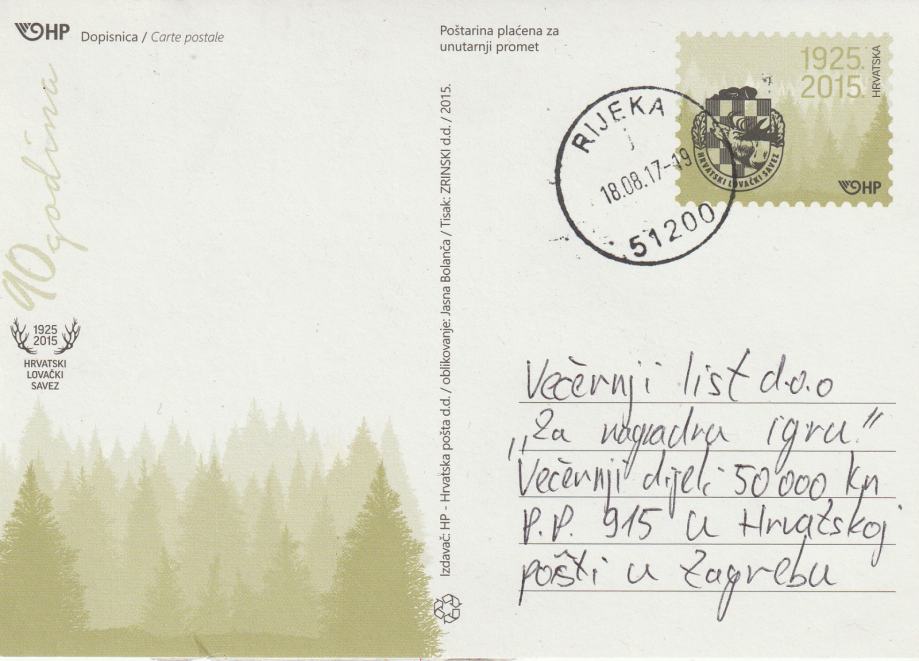 HP
Dopisnica / Carte postale
90 godina
1925
2015
HRVATSKI
LOVAČKI
SAVEZ
Izdavač: HP - Hrvatska pošta d.d. / oblikovanje: Jasna Bolanča / Tisak: ZRINSKI d.d. / 2015.
Poštarina plaćena za
unutarnji promet
RIJEKA
18.08.17-19
51200
1925.
2015.
HRVATSKA
HRVATSKI LOVAČKI SAVEZ
HP
Večernji list d.o.o
„Za nagradnu igru"
Večernji dijeli 50 000 kn
P.P. 915 u Hrvatskoj
pošti u Zagrebu